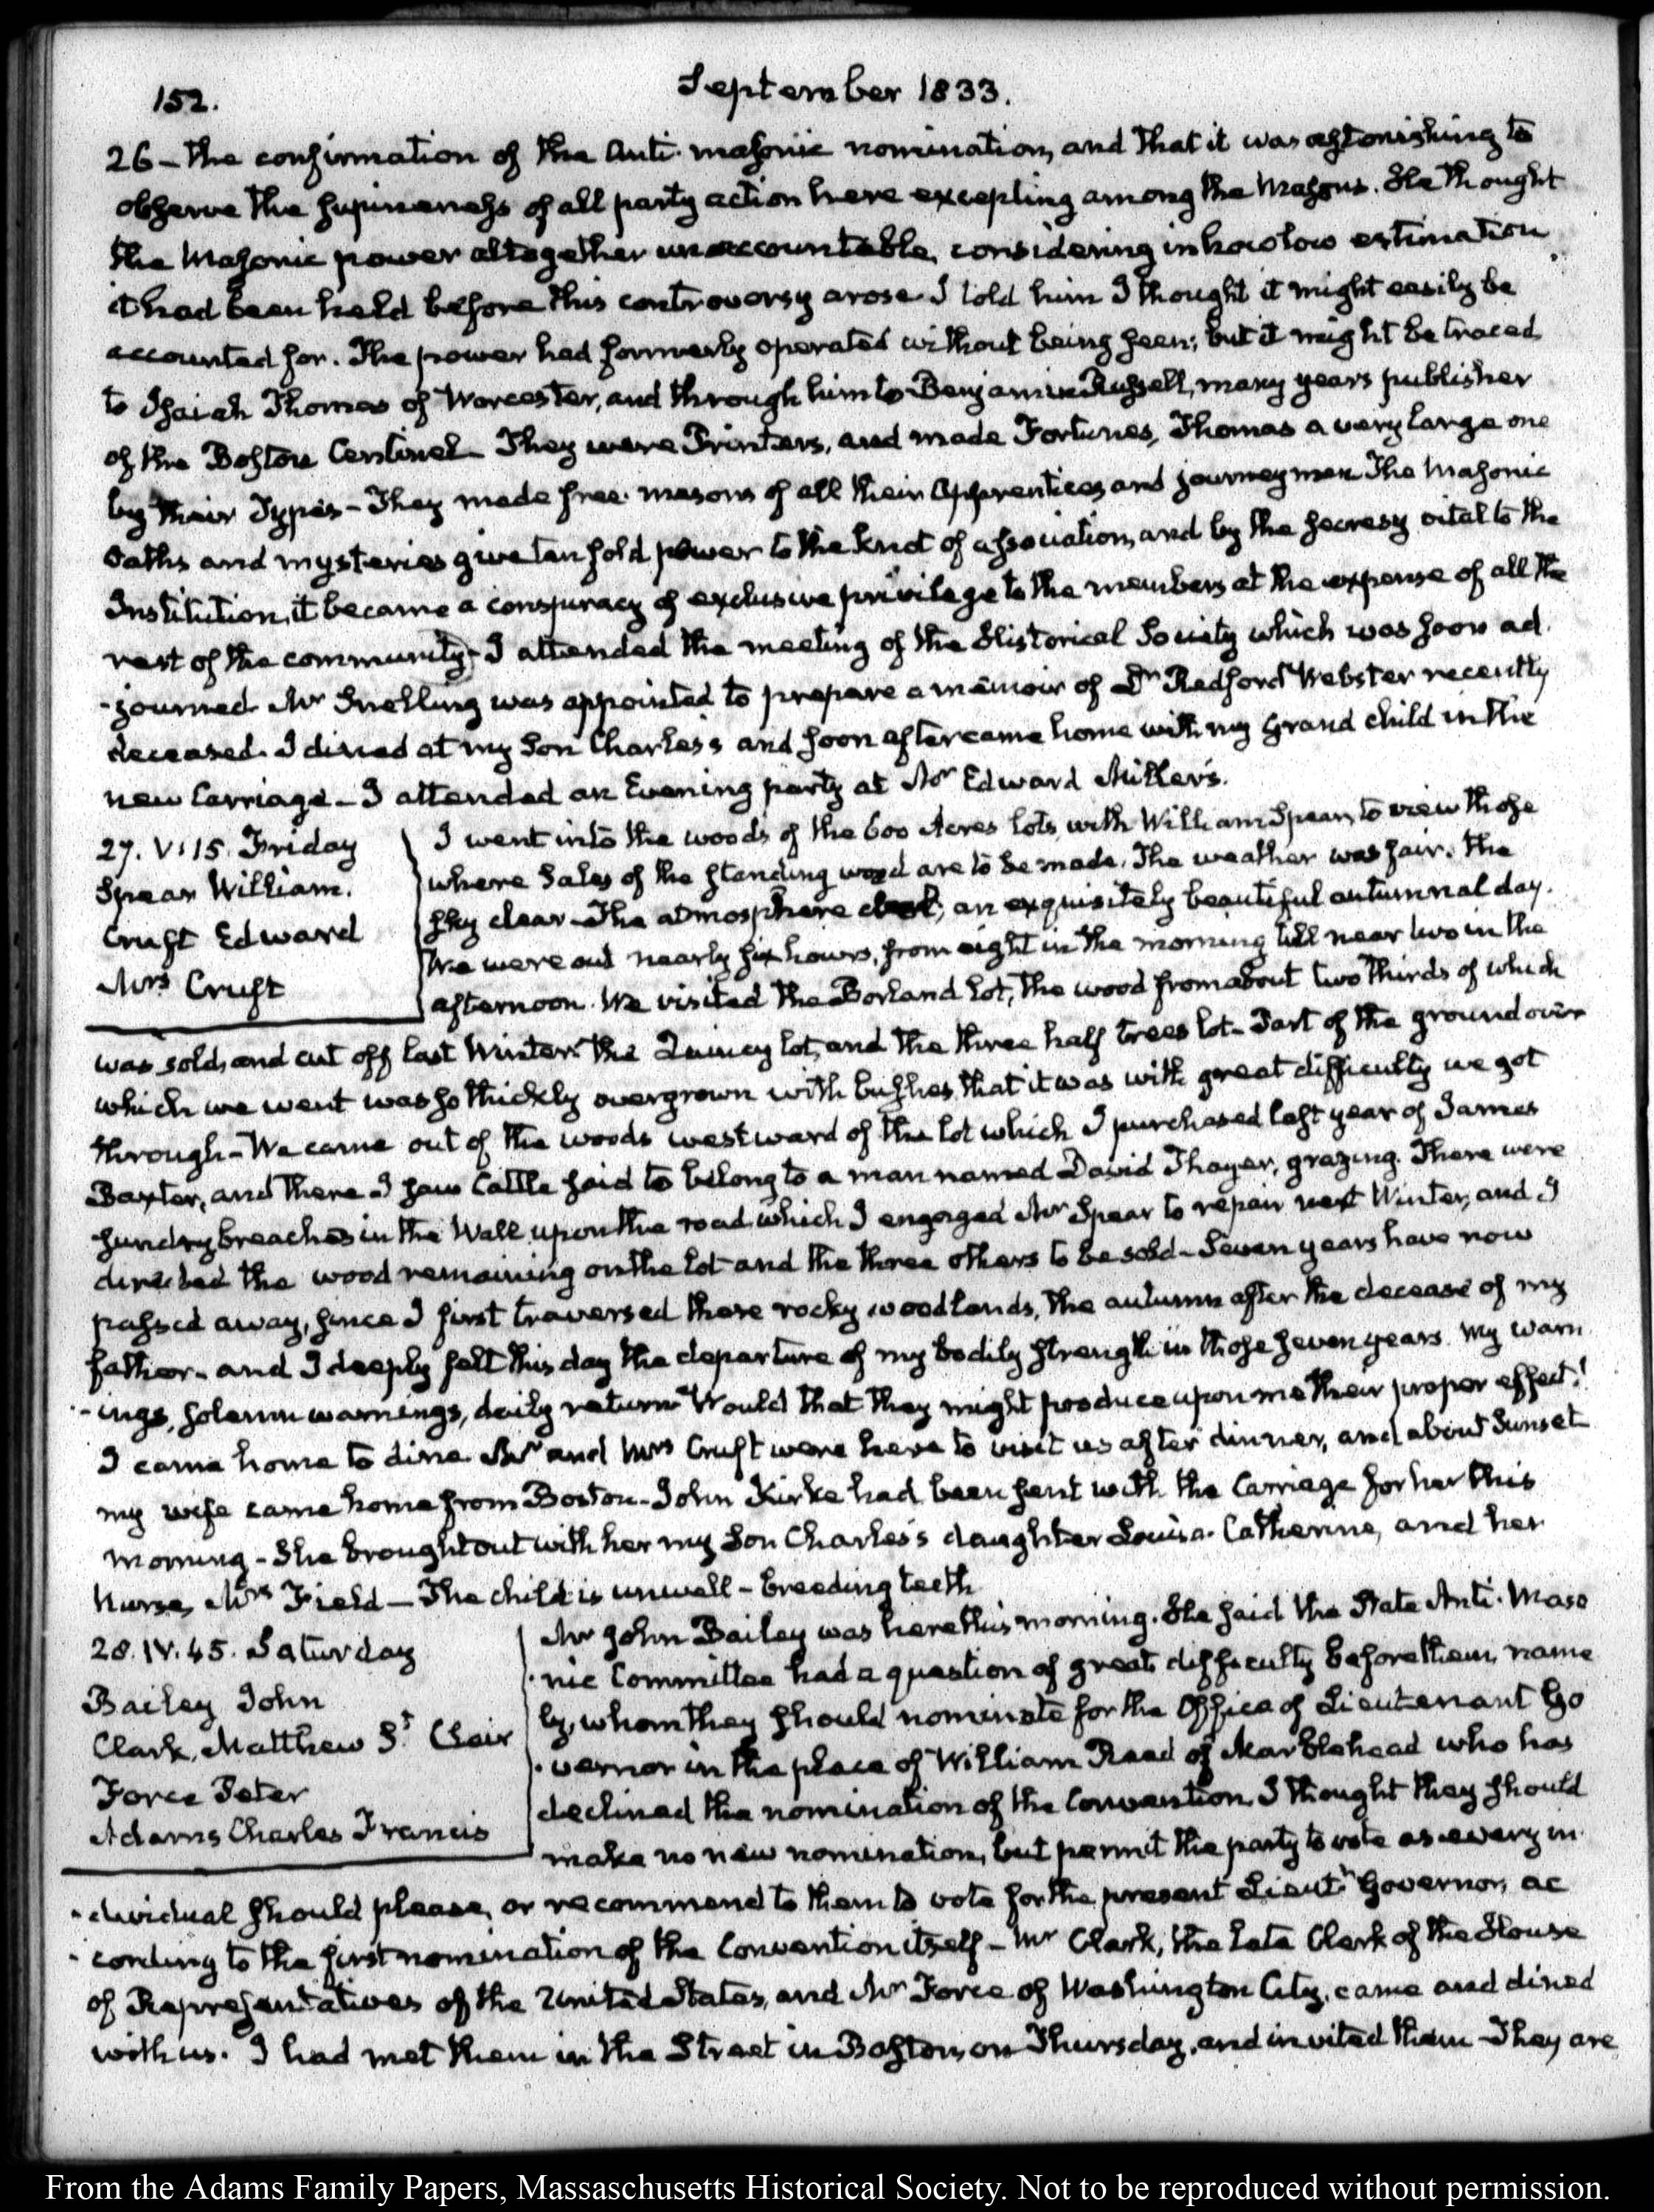 152.
September 1833.
26 – the confirmation of the Anti-masonic nomination, and that it was astonishing to
observe the supineness of all party action here excepting among the Masons. He thought
the Masonic power altogether unaccountable, considering in how low estimation
it had been held before this controversy arose. I told him I thought it might easily be
accounted for. The power had formerly operated without being seen; but it might be traced
to Isaiah Thomas of Worcester, and through him to Benjamin Russell, many years publisher
of the Boston Centinel. They were Printers, and made Fortunes, Thomas a very large one
by their Types – They made free-masons of all their Apprentices and journeymen The Masonic
oaths and mysteries give ten fold power to the knot of association, and by the secresy vital to the
Institution, it became a conspiracy of exclusive privilege to the members at the expense of all the
rest of the community – I attended the meeting of the Historical Society which was soon ad-
-journed. Mr Snelling was appointed to prepare a memoir of Dr Redford Webster recently
deceased. I dined at my Son Charles's and soon after came home with my Grand child in the
new Carriage – I attended an Evening party at Mr Edward Miller's.
27. V:15. Friday
Spear William.
Cruft Edward
Mrs Cruft
I went into the woods of the 600 Acres lots, with William Spear, to view those
where Sales of the standing wood are to be made. The weather was fair. The
sky clear – The atmosphere ; an exquisitely beautiful autumnal day.
We were out nearly six hours, from eight in the morning till near two in the
afternoon. We visited the Borland lot, the wood from about two thirds of which
was sold, and cut off last Winter. the Quincy lot, and the three half trees lot – Part of the ground over
which we went was so thickly overgrown with bushes, that it was with great difficulty we got
through – We came out of the woods westward of the lot which I purchased last year of James
Baxter, and there I saw Cattle said to belong to a man named David Thayer, grazing. There were
sundry breaches in the Wall, upon the road which I engaged Mr Spear to repair next Winter, and I
directed the wood remaining on the lot and the three others to be sold – Seven years have now
passed away, since I first traversed these rocky woodlands, the autumn after the decease of my
father – and I deeply felt this day the departure of my bodily strength in those seven years. My warn-
-ings, solemn warnings, daily return – Would that they might produce upon me their proper effect!
I came home to dine Mr and Mrs Cruft were here to visit us after dinner, and about Sunset
my wife came home from Boston – John Kirke had been sent with the Carriage for her this
morning – She brought out with her my Son Charles's daughter Louisa-Catherine, and her
Nurse, Mrs Field – The child is unwell – breeding teeth
28. IV.45. Saturday
Bailey John
Clark, Matthew St Clair
Force Peter
Adams Charles Francis
Mr John Bailey was here this morning. He said the State Anti-Maso
-nic Committee had a question of great difficulty before them, name
ly, whom they should nominate for the Office of Lieutenant Go
-vernor in the place of William Read of Marblehead who has
declined the nomination of the Convention, I thought they should
make no new nomination, but permit the party to vote as every in-
-dividual should please, or recommend to them to vote for the present Lieutt Governor, ac
-cording to the first nomination of the Convention itself – Mr Clark, the late Clerk of the House
of Representatives of the United States, and Mr Force of Washington City, came and dined
with us. I had met them in the Street in Boston, on Thursday, and invited them – They are
From the Adams Family Papers, Massachusetts Historical Society. Not to be reproduced without permission.